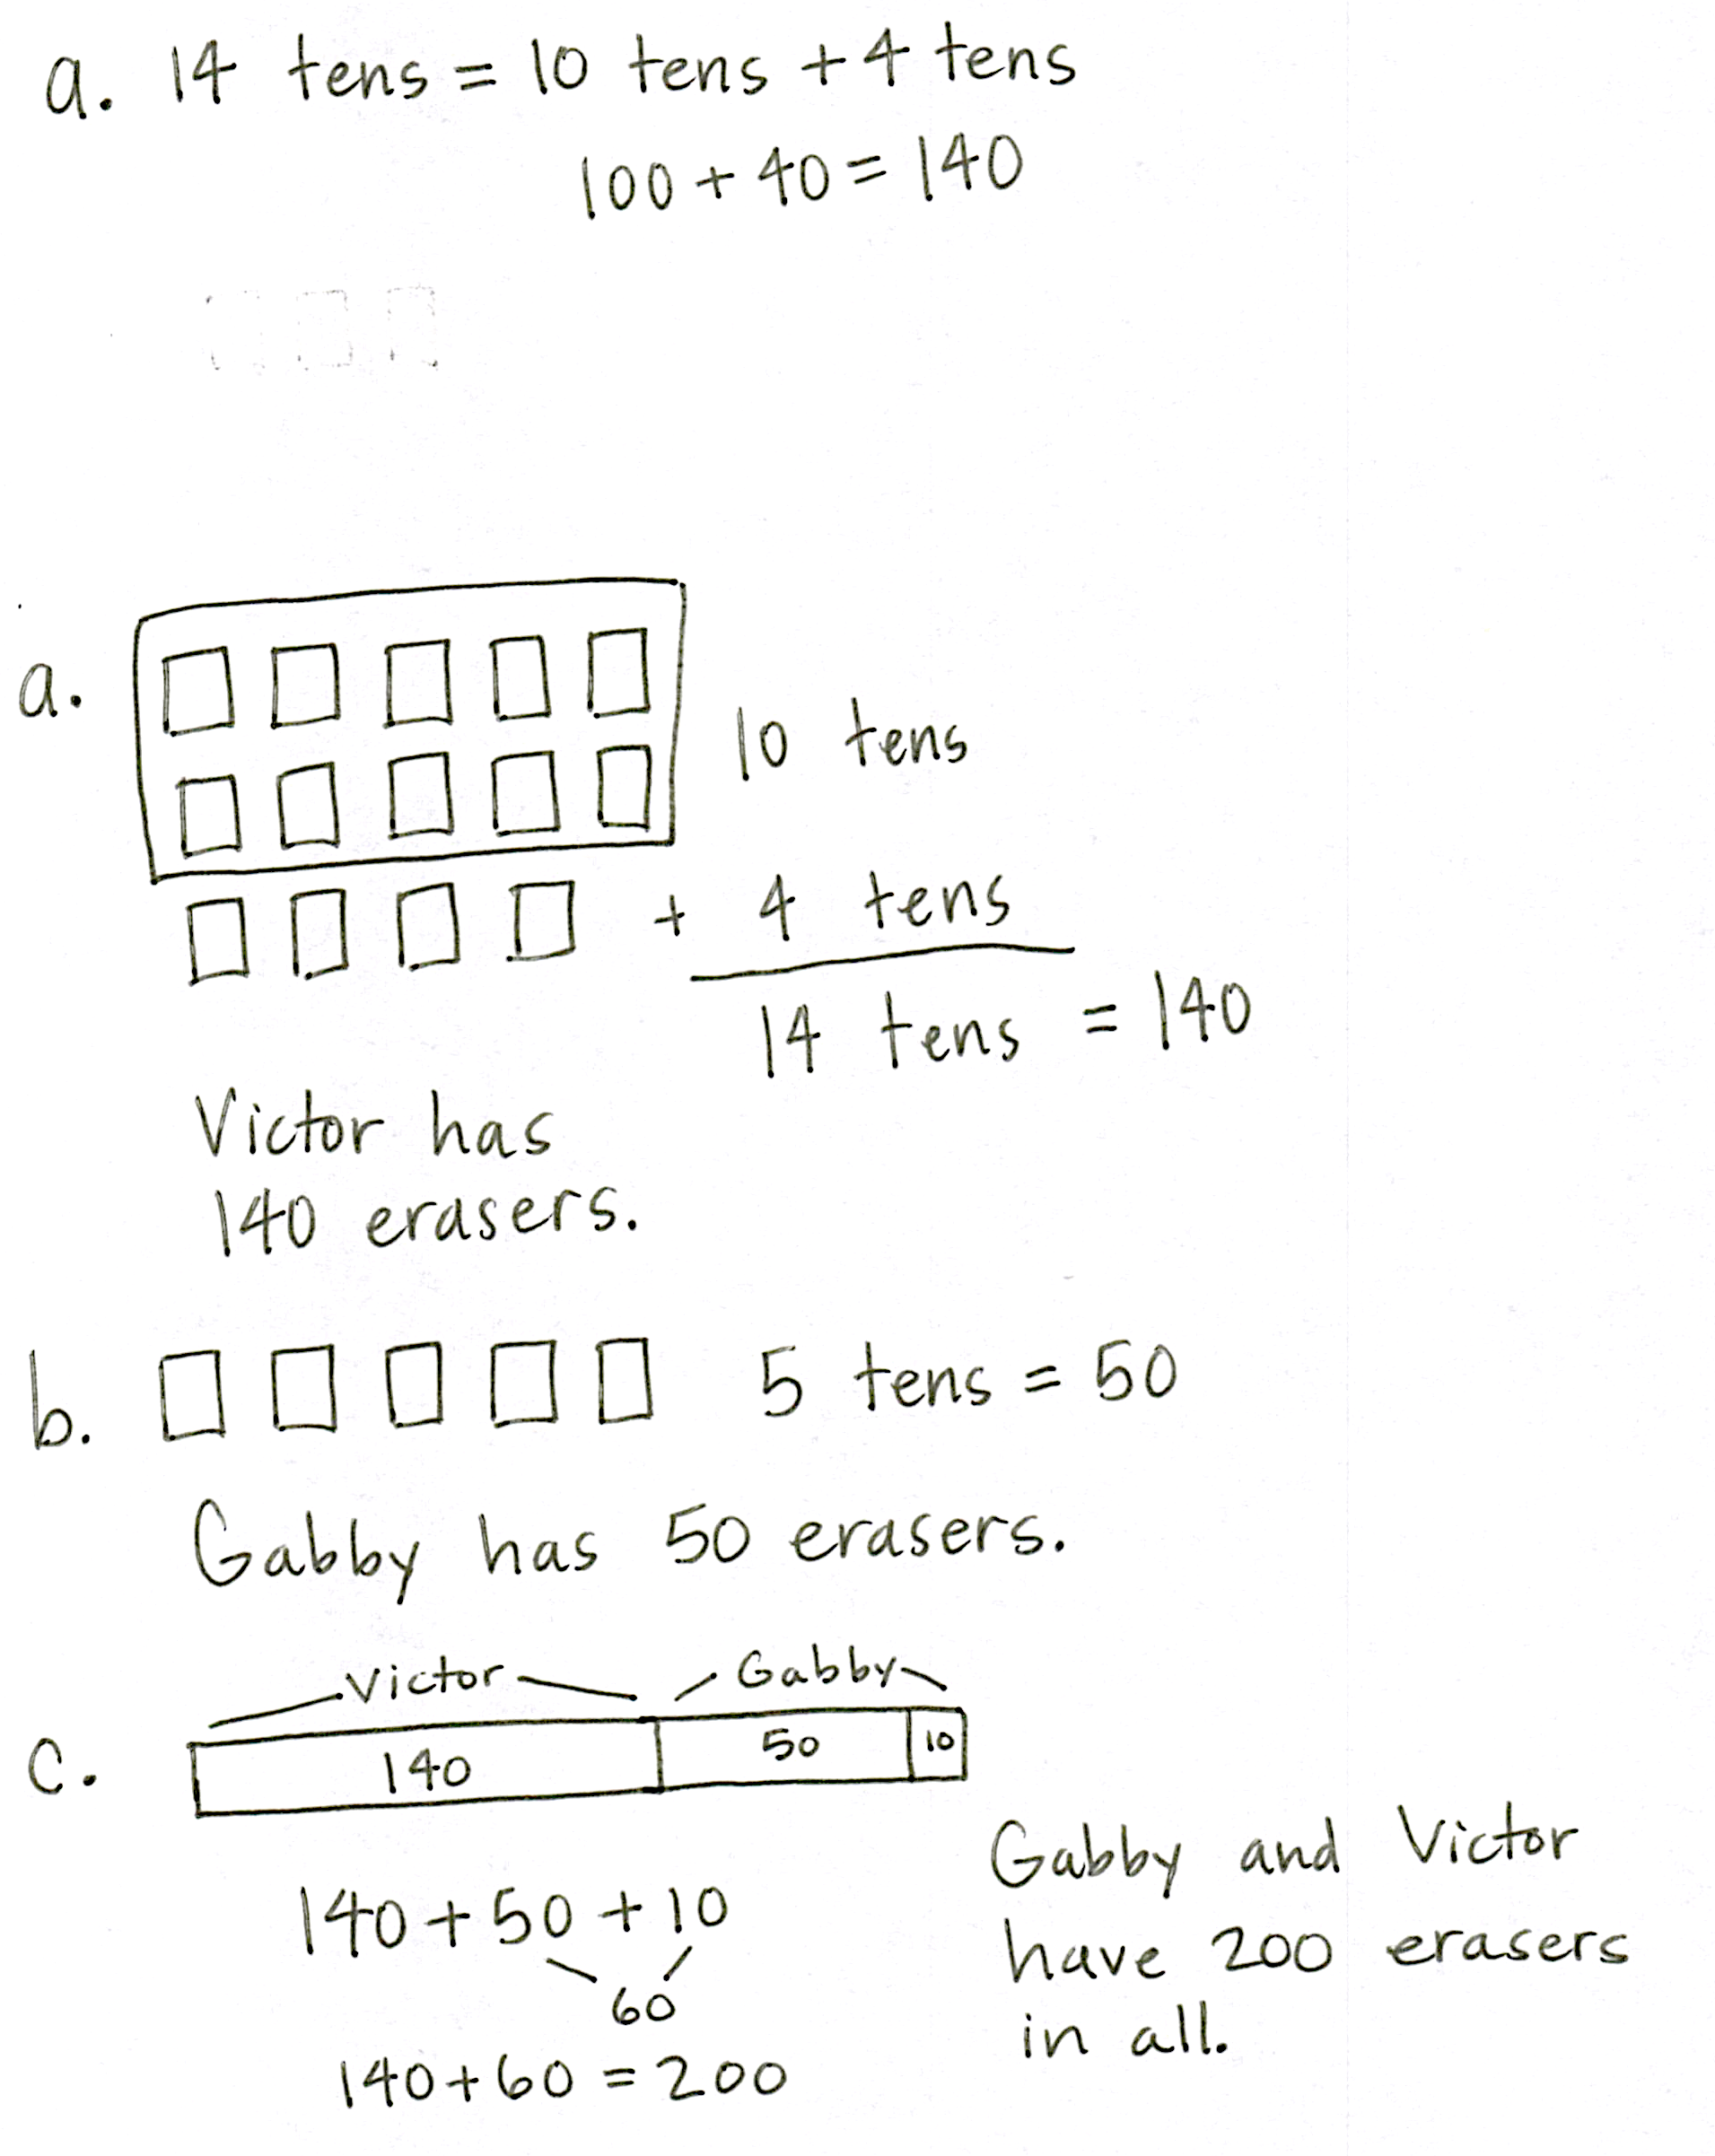 a. 14 tens = 10 tens + 4 tens
100 + 40 = 140
a.
10 tens
+ 4 tens
14 tens = 140
Victor has
140 erasers.
b. 5 tens = 50
Gabby has 50 erasers.
Victor Gabby
c. 140 50 10
140 + 50 + 10
60
140 + 60 = 200
Gabby and Victor
have 200 erasers
in all.